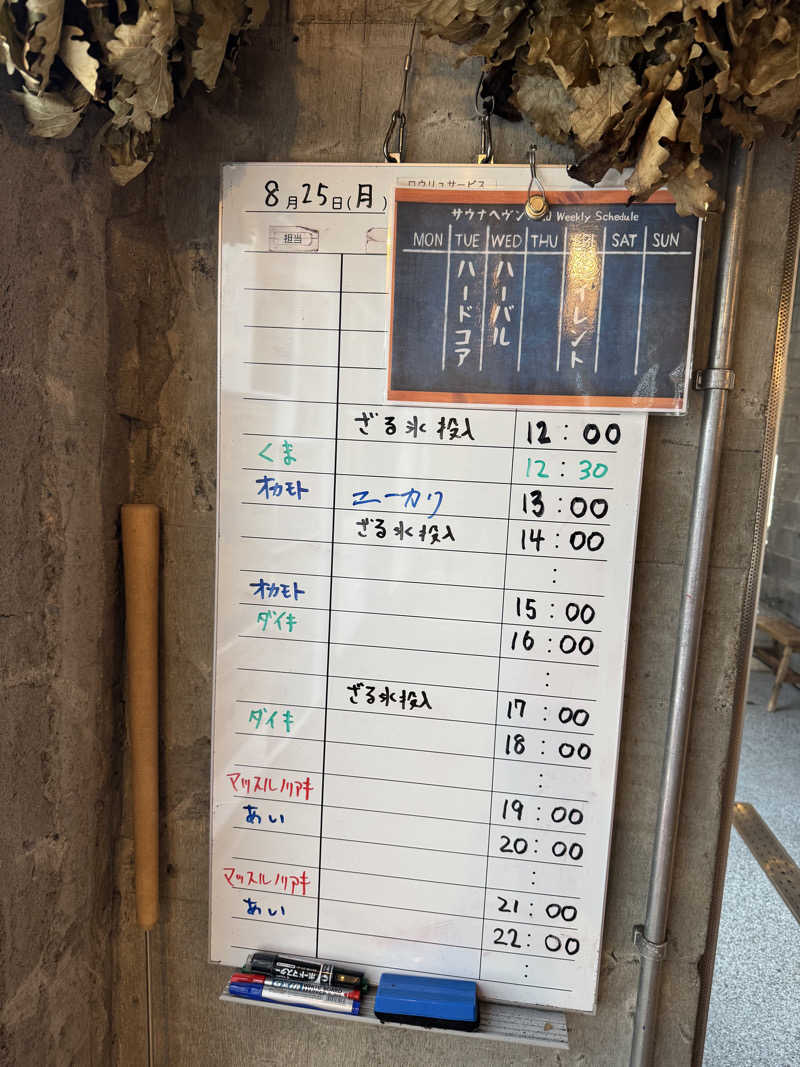 8月25日(月) ロウリュサービス
担当
サウナヘヴン Weekly Schedule
MON TUE WED THU FRI SAT SUN
ハードコア ハーバル サイレント
ざる氷投入 12:00
くま 12:30
オカモト ユーカリ 13:00
ざる氷投入 14:00
:
オカモト 15:00
ダイキ 16:00
:
ざる氷投入 17:00
ダイキ 18:00
:
マッスルノリアキ 19:00
あい 20:00
:
マッスルノリアキ 21:00
あい 22:00
:
ボードマスター